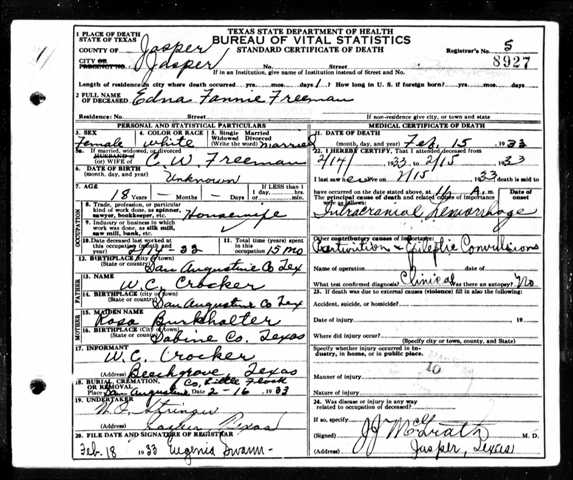 TEXAS STATE DEPARTMENT OF HEALTH
BUREAU OF VITAL STATISTICS
STANDARD CERTIFICATE OF DEATH
1 PLACE OF DEATH
STATE OF TEXAS
COUNTY OF Jasper
CITY OR
PRECINCT NO. Jasper
No. St.
Registrar's No. 5
8927
If in an Institution, give name of Institution instead of Street and No.
Length of residence in city where death occurred yrs. mos. days 1 How long in U. S. if foreign born? yrs. mos. days
2 FULL NAME
OF DECEASED Edna Fannie Freeman
Residence: No. St.
If non-residence give city, or town and state
PERSONAL AND STATISTICAL PARTICULARS
3. SEX Female
4. COLOR OR RACE White
5. Single Married Widowed Divorced (Write the word) Married
6. If married, widowed, or divorced
HUSBAND of
(or) WIFE of C. W. Freeman
6. DATE OF BIRTH
(month, day, and year) Unknown
7. AGE 18 Years - Months - Days
If LESS than 1 day, hrs. min.
OCCUPATION
8. Trade, profession, or particular kind of work done, as spinner, sawyer, bookkeeper, etc. Housewife
9. Industry or business in which work was done, as silk mill, saw mill, bank, etc.
10. Date deceased last worked at this occupation 32
11. Total time (years) spent in this occupation 15 mo
12. BIRTHPLACE (city or town)
(State or country) San Augustine Co Tex
FATHER
13. NAME W. C. Crocker
14. BIRTHPLACE (city or town)
(State or country) San Augustine Co Tex
MOTHER
15. MAIDEN NAME Rosa Burkhalter
16. BIRTHPLACE (city or town)
(State or country) Sabine Co. Texas
17. INFORMANT W. C. Crocker
(Address) Beechgrove, Texas
18. BURIAL, CREMATION, OR REMOVAL
San Augustine Co, Little Flock 2-16 1933
19. UNDERTAKER
(Address) Texas
20. FILE DATE AND SIGNATURE OF REGISTRAR
Feb. 18 1933 Eugenia Swann
MEDICAL CERTIFICATE OF DEATH
21. DATE OF DEATH
(month, day, and year) Feb 15 1933
22. I HEREBY CERTIFY, That I attended deceased from
2/14 1933 2/15 1933
I last saw her 2/15 1933 death is said to
have occurred on the date stated above, at A. m.
The principal cause of death and related causes of importance
were as follows: Date of onset
Intracranial Hemorrhage
Other contributory causes of importance:
Parturition & Epileptic Convulsions
Name of operation
What test confirmed diagnosis? Clinical Was there an autopsy? No
23. If death was due to external causes (violence) fill in also the following:
Accident, suicide, or homicide?
Date of injury 19
Where did injury occur?
(Specify city or town, county, and State)
Specify whether injury occurred in industry, in home, or in public place
Manner of injury
Nature of injury
24. Was disease or injury in any way related to occupation of deceased?
If so, specify
(Signed) J J McGrath M. D.
Jasper, Texas